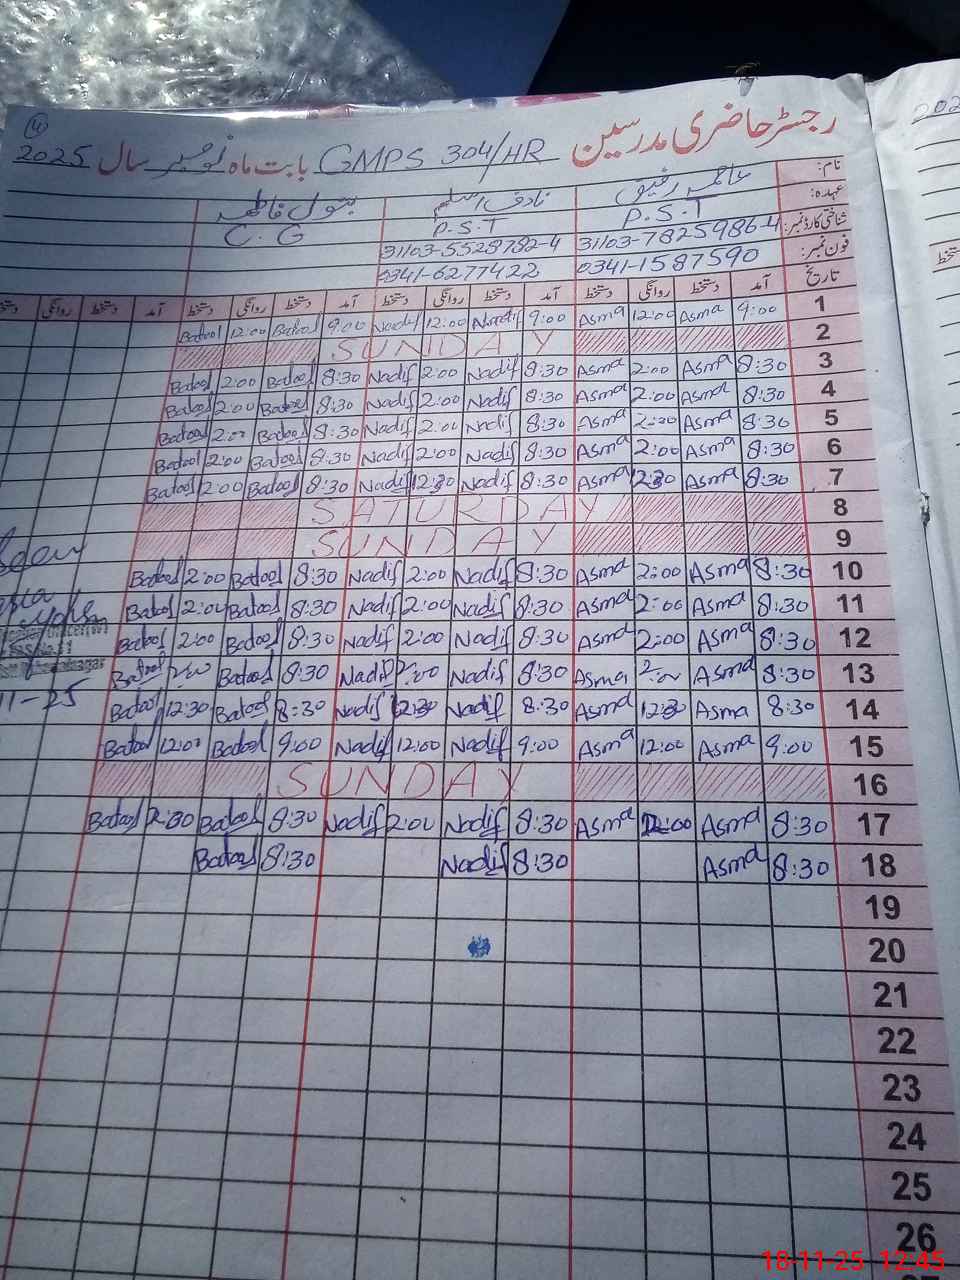 رجسٹر حاضری مدرسین GMPS 304/HR بابت ماہ نومبر سال 2025
نام: عاصمہ رفیق
عہدہ: P.S.T P.S.T C.G
شناختی کارڈ نمبر: 31103-7825986-4 31103-5528782-4
فون نمبر: 0341-1587590 0341-6277422
تاریخ آمد دستخط روانگی دستخط آمد دستخط روانگی دستخط آمد دستخط روانگی دستخط آمد دستخط روانگی
1 9:00 Asma 12:00 Asma 9:00 Nadif 12:00 Nadif 9:00 Batool 12:00 Batool
2 SUNDAY
3 8:30 Asma 2:00 Asma 8:30 Nadif 2:00 Nadif 8:30 Batool 2:00 Batool
4 8:30 Asma 2:00 Asma 8:30 Nadif 2:00 Nadif 8:30 Batool 2:00 Batool
5 8:30 Asma 2:00 Asma 8:30 Nadif 2:00 Nadif 8:30 Batool 2:00 Batool
6 8:30 Asma 2:00 Asma 8:30 Nadif 2:00 Nadif 8:30 Batool 2:00 Batool
7 8:30 Asma 12:30 Asma 8:30 Nadif 12:30 Nadif 8:30 Batool 2:00 Batool
8 SATURDAY
9 SUNDAY
10 8:30 Asma 2:00 Asma 8:30 Nadif 2:00 Nadif 8:30 Batool 2:00 Batool
11 8:30 Asma 2:00 Asma 8:30 Nadif 2:00 Nadif 8:30 Batool 2:00 Batool
12 8:30 Asma 2:00 Asma 8:30 Nadif 2:00 Nadif 8:30 Batool 2:00 Batool
13 8:30 Asma 2:00 Asma 8:30 Nadif 2:00 Nadif 8:30 Batool 2:00 Batool
14 8:30 Asma 12:30 Asma 8:30 Nadif 12:30 Nadif 8:30 Batool 12:30 Batool
15 9:00 Asma 12:00 Asma 9:00 Nadif 12:00 Nadif 9:00 Batool 12:00 Batool
16 SUNDAY
17 8:30 Asma 2:00 Asma 8:30 Nadif 2:00 Nadif 8:30 Batool 2:30 Batool
18 8:30 Asma 8:30 Nadif 8:30 Batool
19
20
21
22
23
24
25
26
18-11-25 12:45